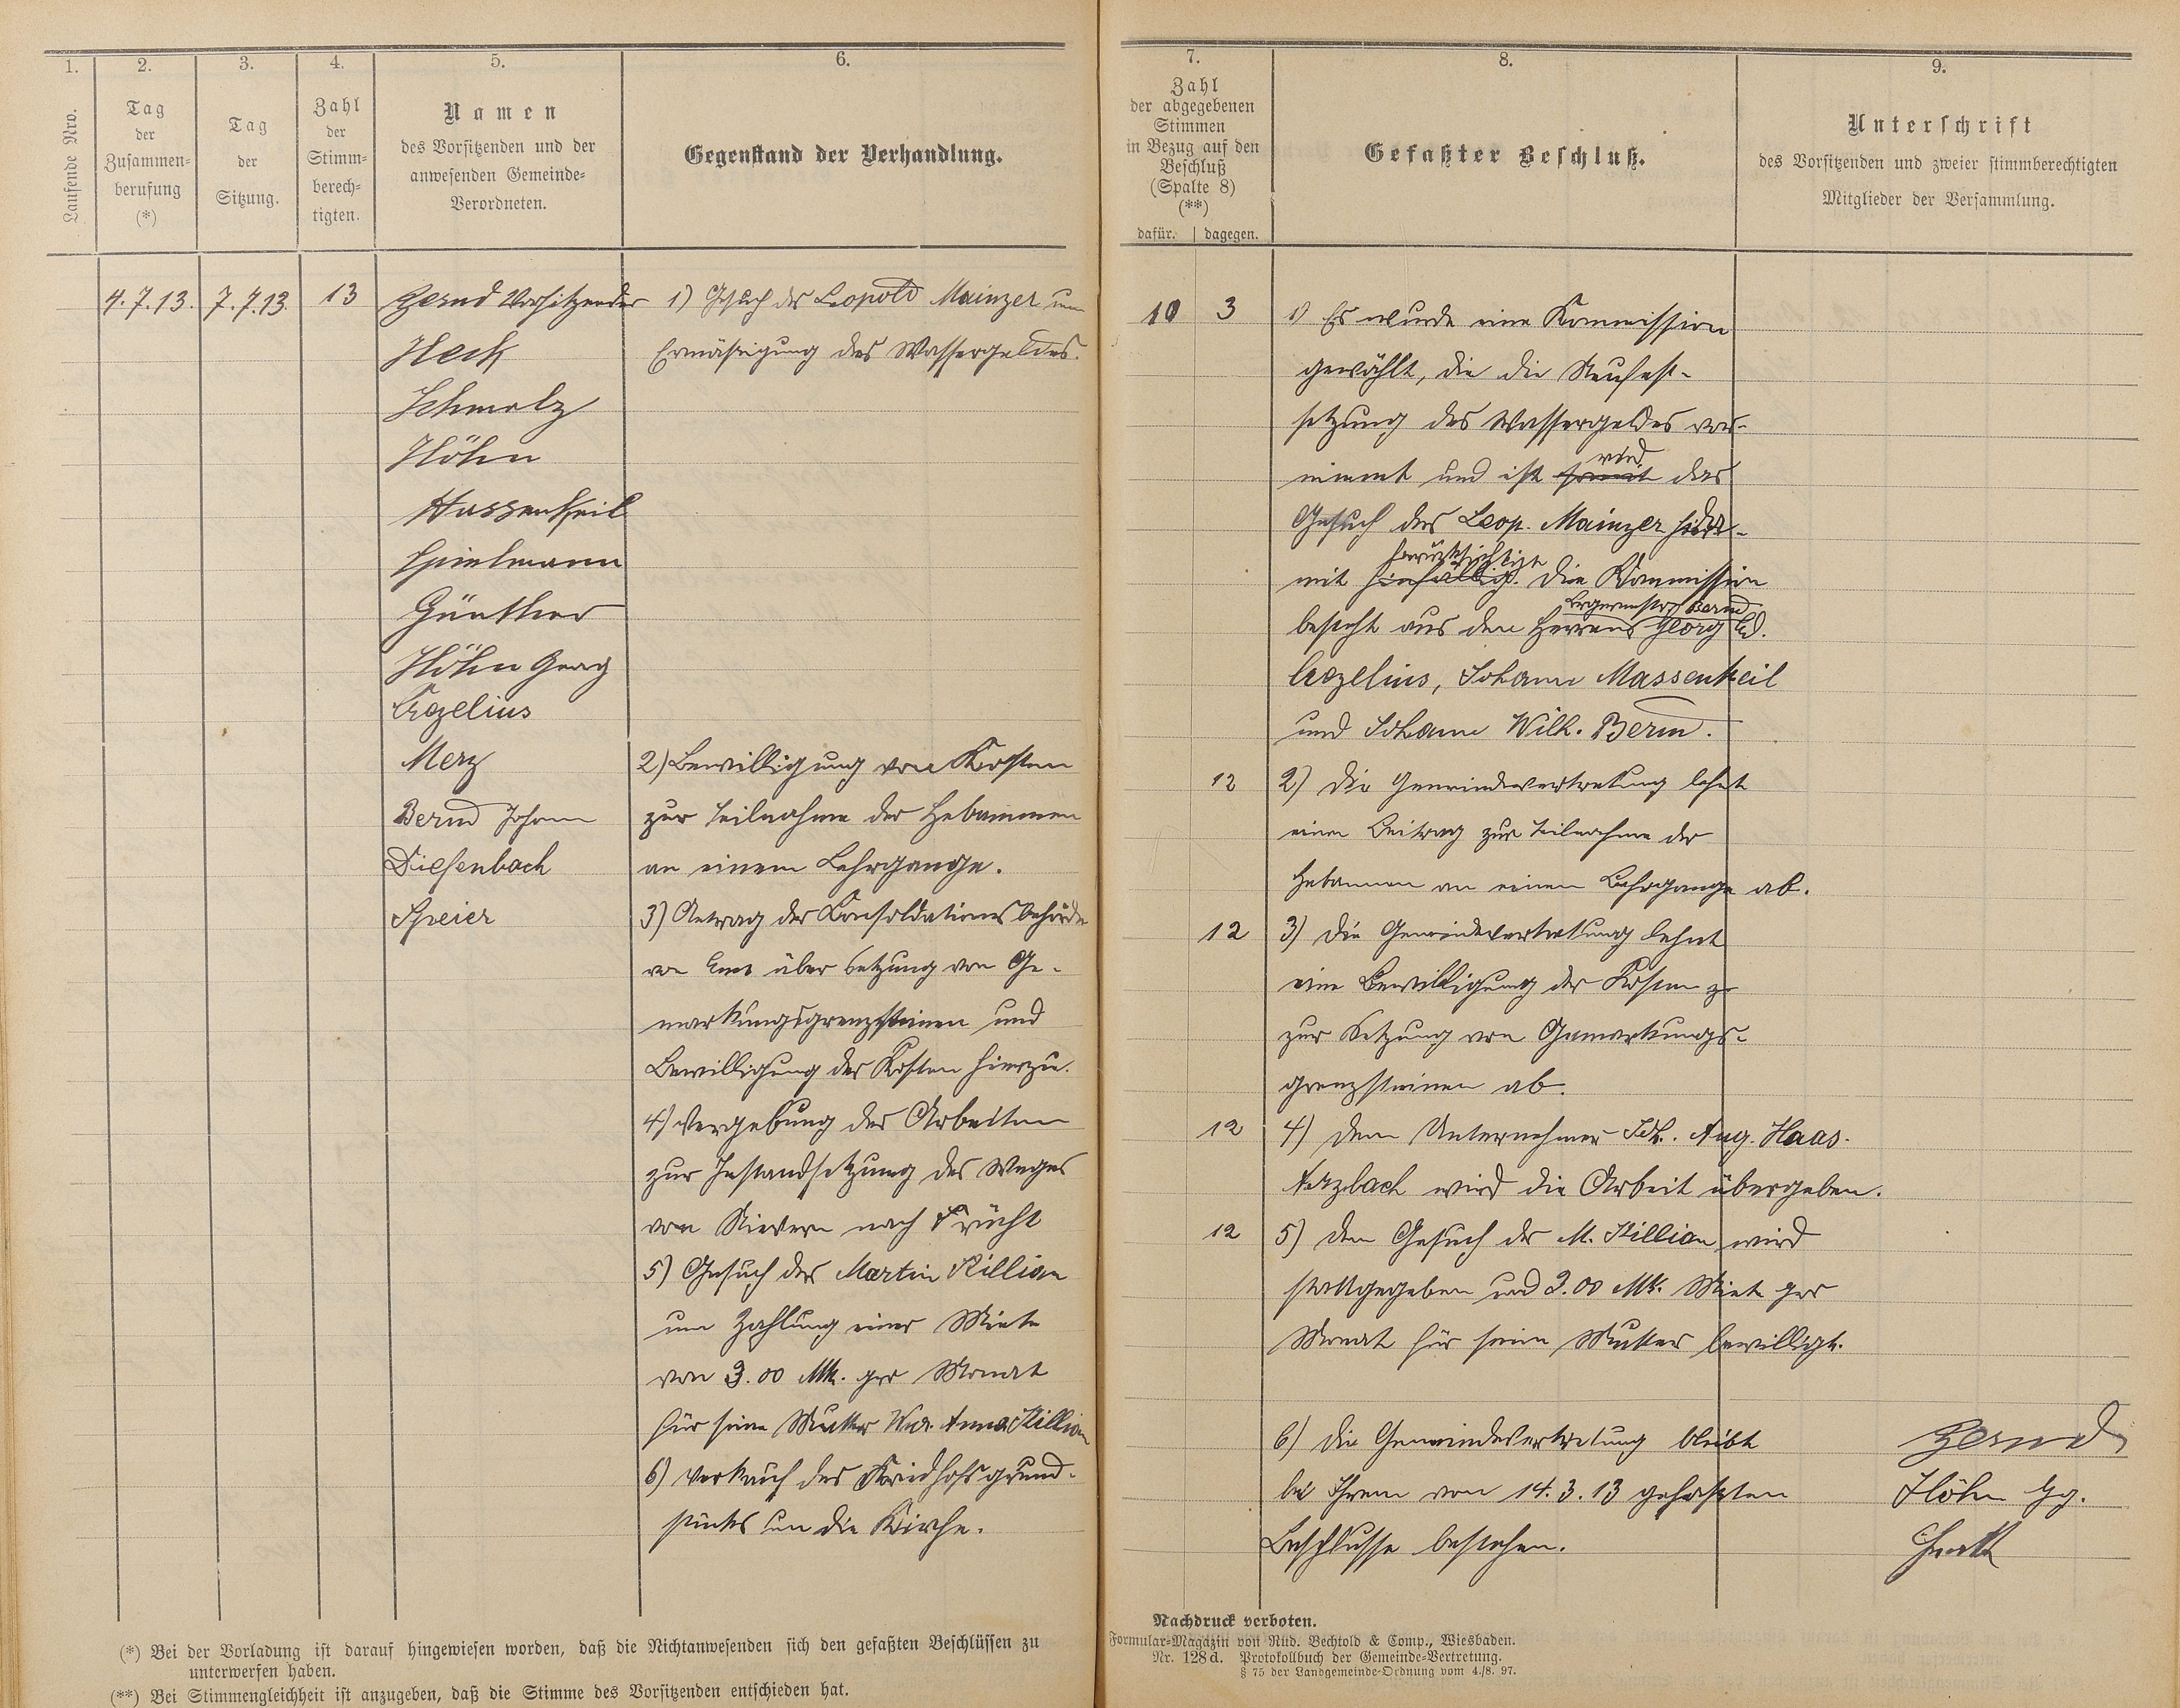 1.
Laufende Nro.
2.
Tag
der
Zusammen=
berufung
(*)
3.
Tag
der
Sitzung.
4.
Zahl
der
Stimm=
berech=
tigten.
5.
Namen
des Vorsitzenden und der
anwesenden Gemeinde=
Verordneten.
6.
Gegenstand der Verhandlung.
4.7.13.
7.7.13.
13
Bernd Vorsitzender
Heck
Schmalz
Höhn
Massenkeil
Spielmann
Günther
Höhn Georg
Crezelius
Merz
Bernd Johann
Diefenbach
Speier
1) Gesuch des Leopold Mainzer um
Ermäßigung des Wassergeldes.
2) Bewilligung von Kosten
zur Teilnahme der Hebammen
an einem Lehrgange.
3) Antrag der Konsoldationsbehörde
von Ems über Setzung von Ge-
markungsgrenzsteinen und
Bewilligung der Kosten hierzu.
4) Vergebung der Arbeiten
zur Instandsetzung des Weges
von Nievern nach Frücht
5) Gesuch des Martin Killian
um Zahlung einer Miete
von 3.00 Mk. per Monat
für seine Mutter Ww. Anna Killian
6) Verkauf des Friedhofsgrund-
stücks um die Kirche.
(*) Bei der Vorladung ist darauf hingewiesen worden, daß die Nichtanwesenden sich den gefaßten Beschlüssen zu
unterwerfen haben.
(**) Bei Stimmengleichheit ist anzugeben, daß die Stimme des Vorsitzenden entschieden hat.
7.
Zahl
der abgegebenen
Stimmen
in Bezug auf den
Beschluß
(Spalte 8)
(**)
dafür. | dagegen.
8.
Gefaßter Beschluß.
9.
Unterschrift
des Vorsitzenden und zweier stimmberechtigten
Mitglieder der Versammlung.
10 3
1) Es wurde eine Kommission
gewählt, die die Neufest-
setzung des Wassergeldes vor-
wird
nimmt und ist somit das
Gesuch des Leop. Mainzer
berücksichtigt
mit hinfällig. Die Kommission
Bürgermstr. Bernd
besteht aus den Herren Georg Ed.
Crezelius, Johann Massenkeil
und Johann Wilh. Bernd.
12
2) Die Gemeindevertretung lehnt
einen Beitrag zur Teilnahme der
Hebammen an einem Lehrgange ab.
12
3) Die Gemeindevertretung lehnt
eine Bewilligung der Kosten z
zur Setzung von Gemarkungs-
grenzsteinen ab.
12
4) Dem Unternehmer Joh. Aug. Haas.
Arzbach wird die Arbeit übergeben.
12
5) Dem Gesuch des M. Killian wird
stattgegeben und 3.00 Mk. Miete per
Monat für seine Mutter bewilligt.
6) Die Gemeindevertretung bleibt
bei Ihrem von 14.3.13 gefaßten
Beschlusse bestehen.
Bernd
Höhn Gg.
Nachdruck verboten.
Formular=Magazin von Rud. Bechtold & Comp., Wiesbaden.
Nr. 128d. Protokollbuch der Gemeinde=Vertretung.
§ 75 der Landgemeinde=Ordnung vom 4./8. 97.